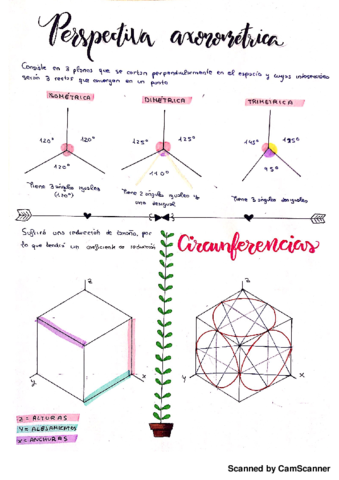 Perspectiva axonométrica
Consiste en 3 planos que se cortan perpendicularmente en el espacio y cuyas intersecciones
serán 3 rectas que convergen en un punto
ISOMÉTRICA
DIMÉTRICA
TRIMÉTRICA
120° 120°
120°
125° 125°
110°
145°
95°
Tiene 3 ángulos iguales
(120°)
Tiene 2 ángulos iguales y
uno desigual
Tiene 3 ángulos desiguales
Sufrirá una reducción de tamaño, por
lo que tendrá un coeficiente de reducción
Circunferencias
z
y
x
z
y
x
Z = ALTURAS
Y = ALEJAMIENTOS
X = ANCHURAS
Scanned by CamScanner